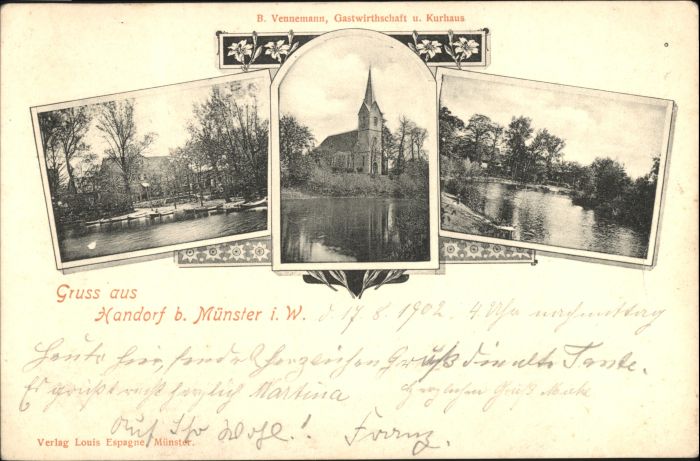 B. Vennemann, Gastwirthschaft u. Kurhaus
Gruss aus
Handorf b. Münster i. W. d. 17. 8. 1902 4 Uhr nachmittag
Heute hier, sendet herzlichen Gruß die alte Tante.
Es grüßt recht herzlich Martina
Herzlichen Gruß
Auf Ihr Wohl! Franz.
Verlag Louis Espagne, Münster.